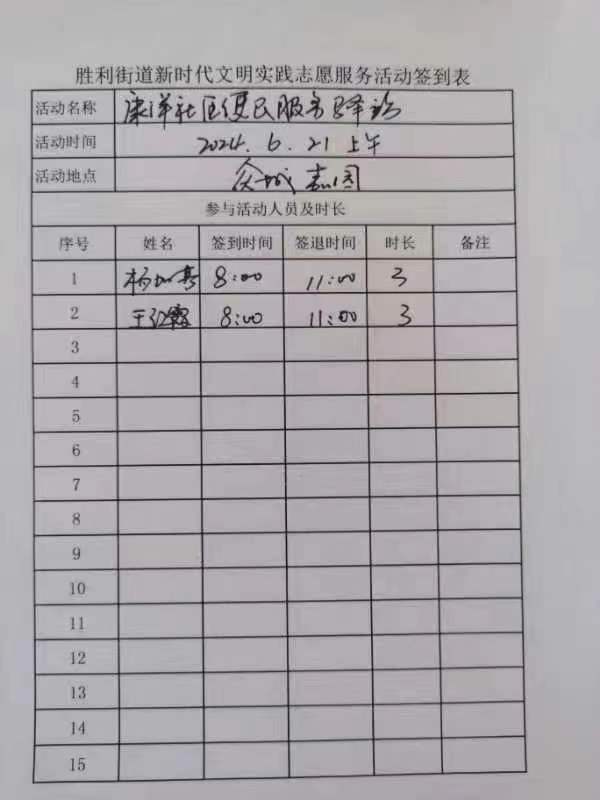 胜利街道新时代文明实践志愿服务活动签到表
活动名称 康洋社区便民服务驿站
活动时间 2024.6.21 上午
活动地点 众城嘉园
参与活动人员及时长
序号 姓名 签到时间 签退时间 时长 备注
1 杨 8:00 11:00 3
2 王红霞 8:00 11:00 3
3
4
5
6
7
8
9
10
11
12
13
14
15